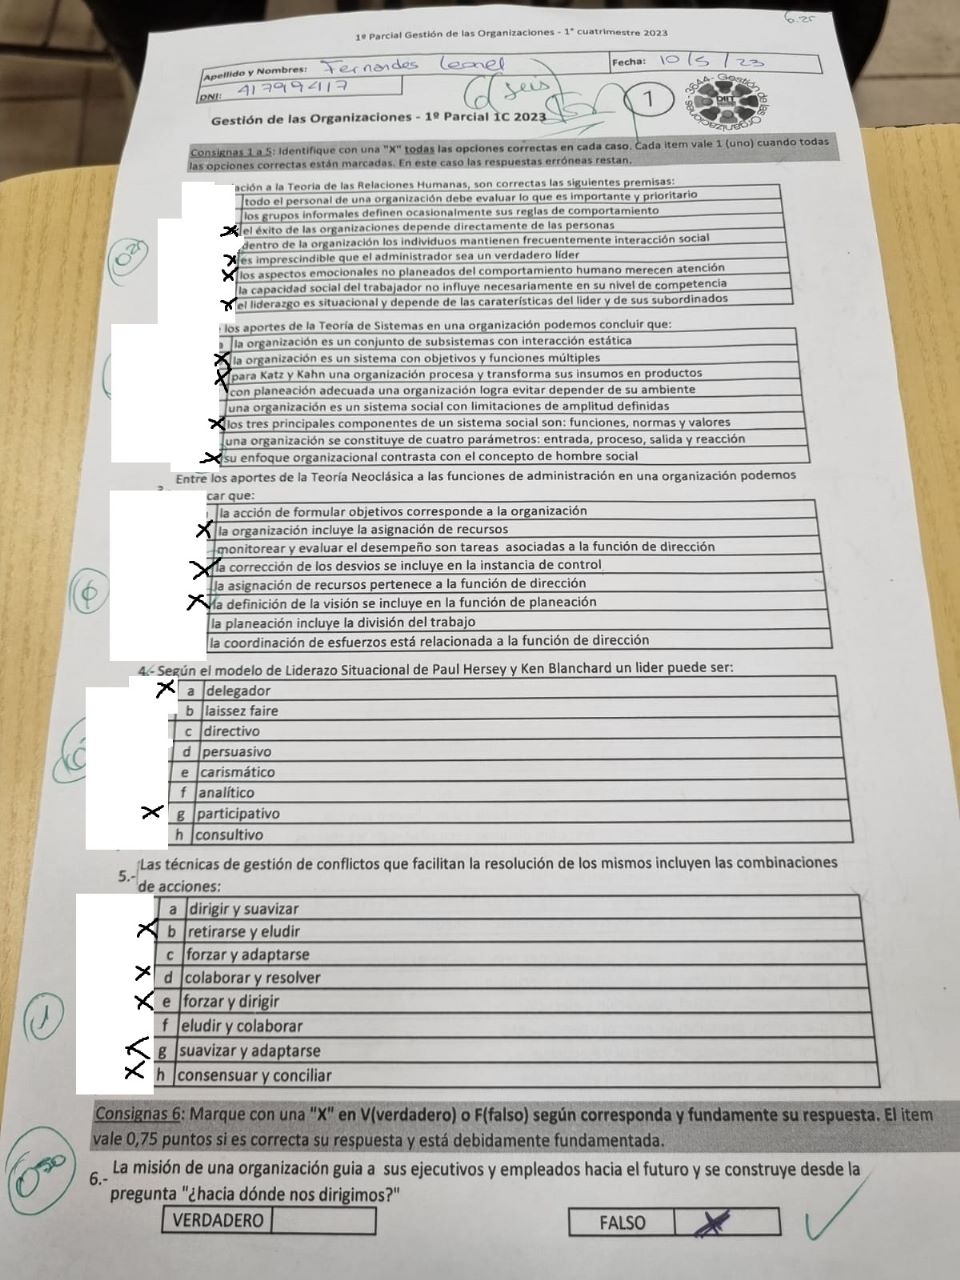 6.25
1º Parcial Gestión de las Organizaciones - 1° cuatrimestre 2023
Apellido y Nombres: Fernandes Leonel
Fecha: 10/5/23
DNI: 41799417
6 (seis)
1
3644- Gestión de las Organizaciones
DIIT
Gestión de las Organizaciones - 1º Parcial 1C 2023
Consignas 1 a 5: Identifique con una "X" todas las opciones correctas en cada caso. Cada item vale 1 (uno) cuando todas
las opciones correctas están marcadas. En este caso las respuestas erróneas restan.
ación a la Teoria de las Relaciones Humanas, son correctas las siguientes premisas:
todo el personal de una organización debe evaluar lo que es importante y prioritario
los grupos informales definen ocasionalmente sus reglas de comportamiento
X el éxito de las organizaciones depende directamente de las personas
dentro de la organización los individuos mantienen frecuentemente interacción social
X es imprescindible que el administrador sea un verdadero líder
X los aspectos emocionales no planeados del comportamiento humano merecen atención
la capacidad social del trabajador no influye necesariamente en su nivel de competencia
X el liderazgo es situacional y depende de las caraterísticas del lider y de sus subordinados
0,25
los aportes de la Teoría de Sistemas en una organización podemos concluir que:
a la organización es un conjunto de subsistemas con interacción estática
X la organización es un sistema con objetivos y funciones múltiples
X para Katz y Kahn una organización procesa y transforma sus insumos en productos
con planeación adecuada una organización logra evitar depender de su ambiente
una organización es un sistema social con limitaciones de amplitud definidas
X los tres principales componentes de un sistema social son: funciones, normas y valores
una organización se constituye de cuatro parámetros: entrada, proceso, salida y reacción
X su enfoque organizacional contrasta con el concepto de hombre social
Entre los aportes de la Teoría Neoclásica a las funciones de administración en una organización podemos
car que:
la acción de formular objetivos corresponde a la organización
X la organización incluye la asignación de recursos
monitorear y evaluar el desempeño son tareas asociadas a la función de dirección
X la corrección de los desvios se incluye en la instancia de control
la asignación de recursos pertenece a la función de dirección
X la definición de la visión se incluye en la función de planeación
la planeación incluye la división del trabajo
la coordinación de esfuerzos está relacionada a la función de dirección
4.- Según el modelo de Liderazo Situacional de Paul Hersey y Ken Blanchard un lider puede ser:
X a delegador
b laissez faire
c directivo
d persuasivo
e carismático
f analítico
X g participativo
h consultivo
5.- Las técnicas de gestión de conflictos que facilitan la resolución de los mismos incluyen las combinaciones
de acciones:
a dirigir y suavizar
X b retirarse y eludir
c forzar y adaptarse
X d colaborar y resolver
X e forzar y dirigir
f eludir y colaborar
X g suavizar y adaptarse
X h consensuar y conciliar
1
Consignas 6: Marque con una "X" en V(verdadero) o F(falso) según corresponda y fundamente su respuesta. El item
vale 0,75 puntos si es correcta su respuesta y está debidamente fundamentada.
0,50
6.- La misión de una organización guia a sus ejecutivos y empleados hacia el futuro y se construye desde la
pregunta "¿hacia dónde nos dirigimos?"
VERDADERO
FALSO X